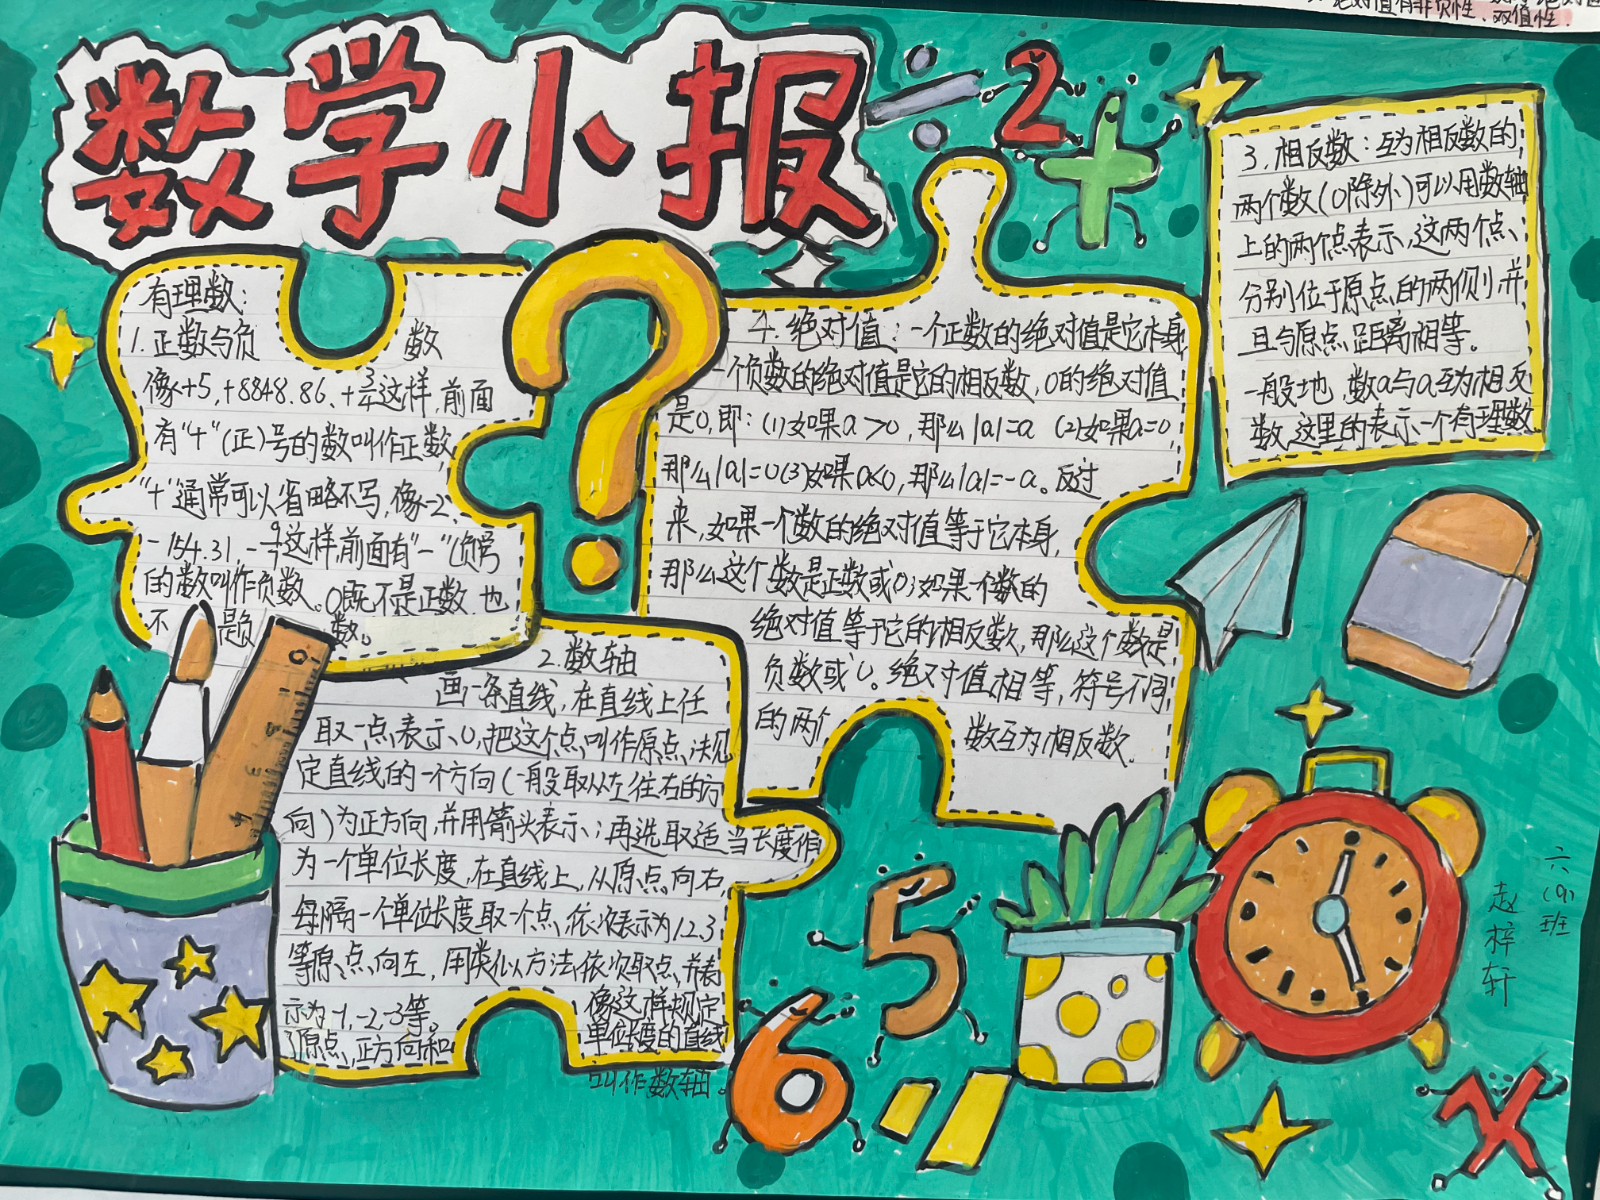 数学小报
有理数:
1.正数与负 数
像+5,+8848.86、+3/4这样,前面
有“+”(正)号的数叫作正数,
“+”通常可以省略不写,像-2、
-154.31,-9/7这样前面有“-”(负号
的数叫作负数。0既不是正数,也
不 题 数。
2.数轴
画一条直线,在直线上任
取一点表示0,把这个点叫作原点,决规
定直线的一个方向(一般取从左往右的方
向)为正方向,并用箭头表示;再选取适当长度作
为一个单位长度,在直线上,从原点向右,
每隔一个单位长度取一个点,依次表示为1.2.3
等原点向左,用类似方法依次取点,并表
示为-1,-2,-3等。 像这样规定
了原点,正方向和 单位长度的直线
叫作数轴。
3.相反数:互为相反数的,
两个数(0除外)可以用数轴
上的两个点表示,这两个点、
分别位于原点的两侧,并
且与原点距离相等。
一般地,数a与a互为相反
数,这里的表示一个有理数
4.绝对值:一个正数的绝对值是它本身
一个负数的绝对值是它的相反数,0的绝对值
是0,即:(1)如果a>0,那么|a|=a (2)如果a=0,
那么|a|=0(3)如果a<0,那么|a|=-a。反过
来,如果一个数的绝对值等于它本身,
那么这个数是正数或0;如果一个数的
绝对值等于它的相反数,那么这个数是
负数或0。绝对值相等,符号不同
的两个 数互为相反数.
六(9)班
赵梓轩
÷ 2 +
5
6
=
X
0
绝对值有非负性、双值性